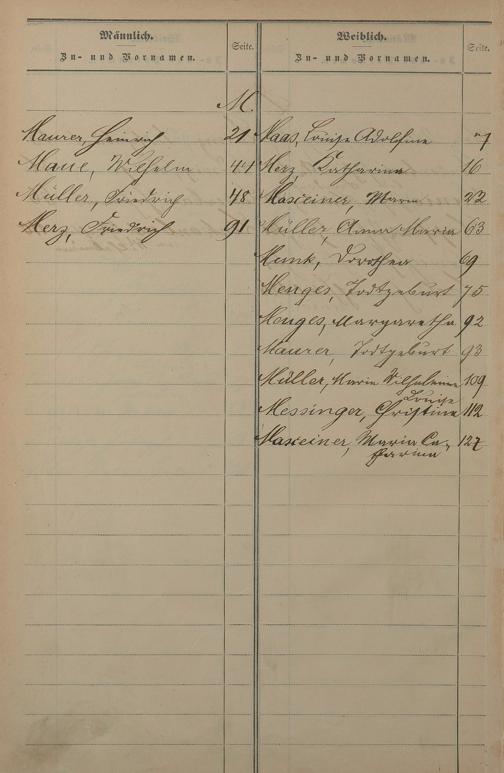 Männlich.
Zu- und Vornamen.
Seite.
Weiblich.
Zu- und Vornamen.
Seite.
M.
Maurer, Heinrich 21
Maue, Wilhelm 44
Müller, Friedrich 48
Merz, Friedrich 91
Maas, Louise Adolfine 7
Merz, Katharina 16
Maxeiner, Maria 22
Müller, Anna Maria 63
Munk, Dorothea 69
Menges, Todtgeburt 75
Menges, Margaretha 92
Maurer, Todtgeburt 93
Müller, Maria Wilhelmine 109
Louise
Messinger, Christine 112
Maxeiner, Maria Ca- 127
tharina